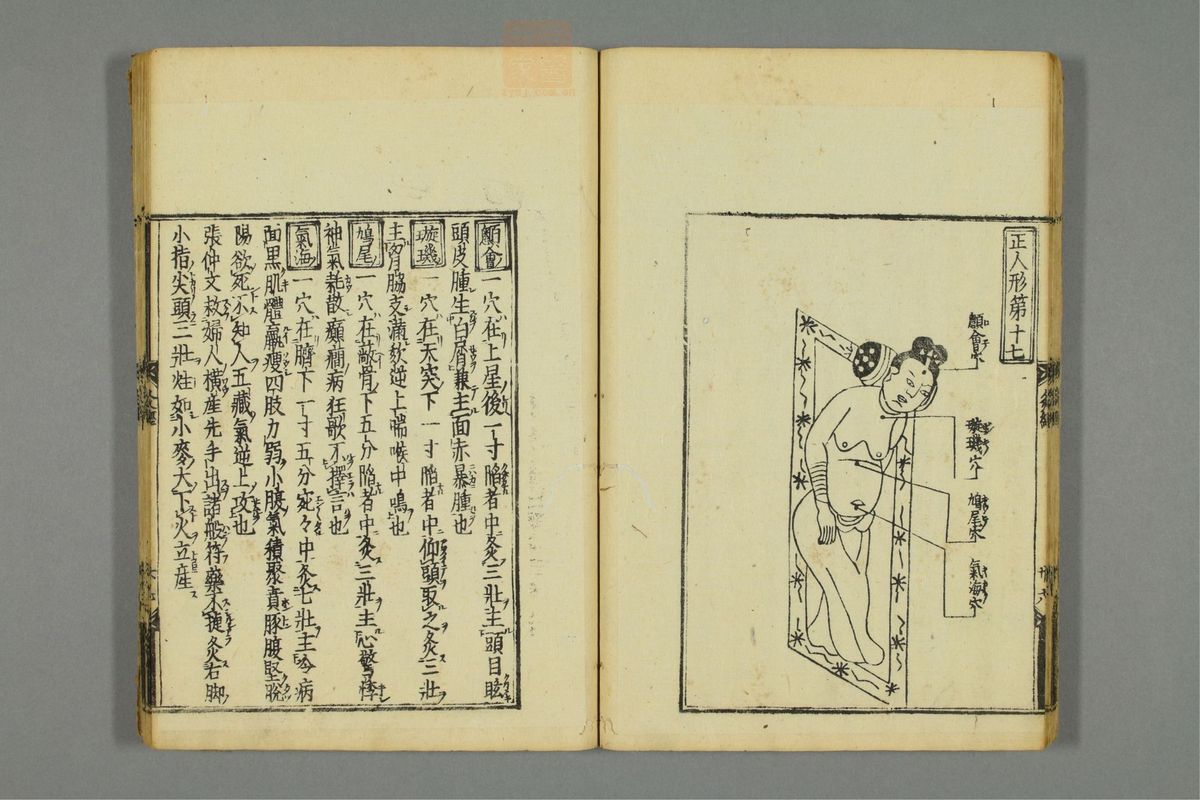 正人形第十七
顖會穴
璇璣穴
鳩尾穴
氣海穴
顖會 一穴在上星後一寸陷者中灸三壯主頭目眩
頭皮腫生白屑兼主面赤暴腫也
璇璣 一穴在天突下一寸陷者中仰頭取之灸三壯
主胷脇支滿欬逆上喘喉中鳴也
鳩尾 一穴在蔽骨下五分陷者中灸三壯主心驚悸
神氣耗散癲癎病狂歌不擇言也
氣海 一穴在臍下一寸五分宛々中灸七壯主冷病
面黒肌體羸瘦四肢力弱小腹氣積聚賁豚腹堅脫
陽欲死不知人五藏氣逆上攻也
張仲文救婦人橫産先手出諸般符藥不捷灸右脚
小指尖頭三壯炷如小麥大下火立産